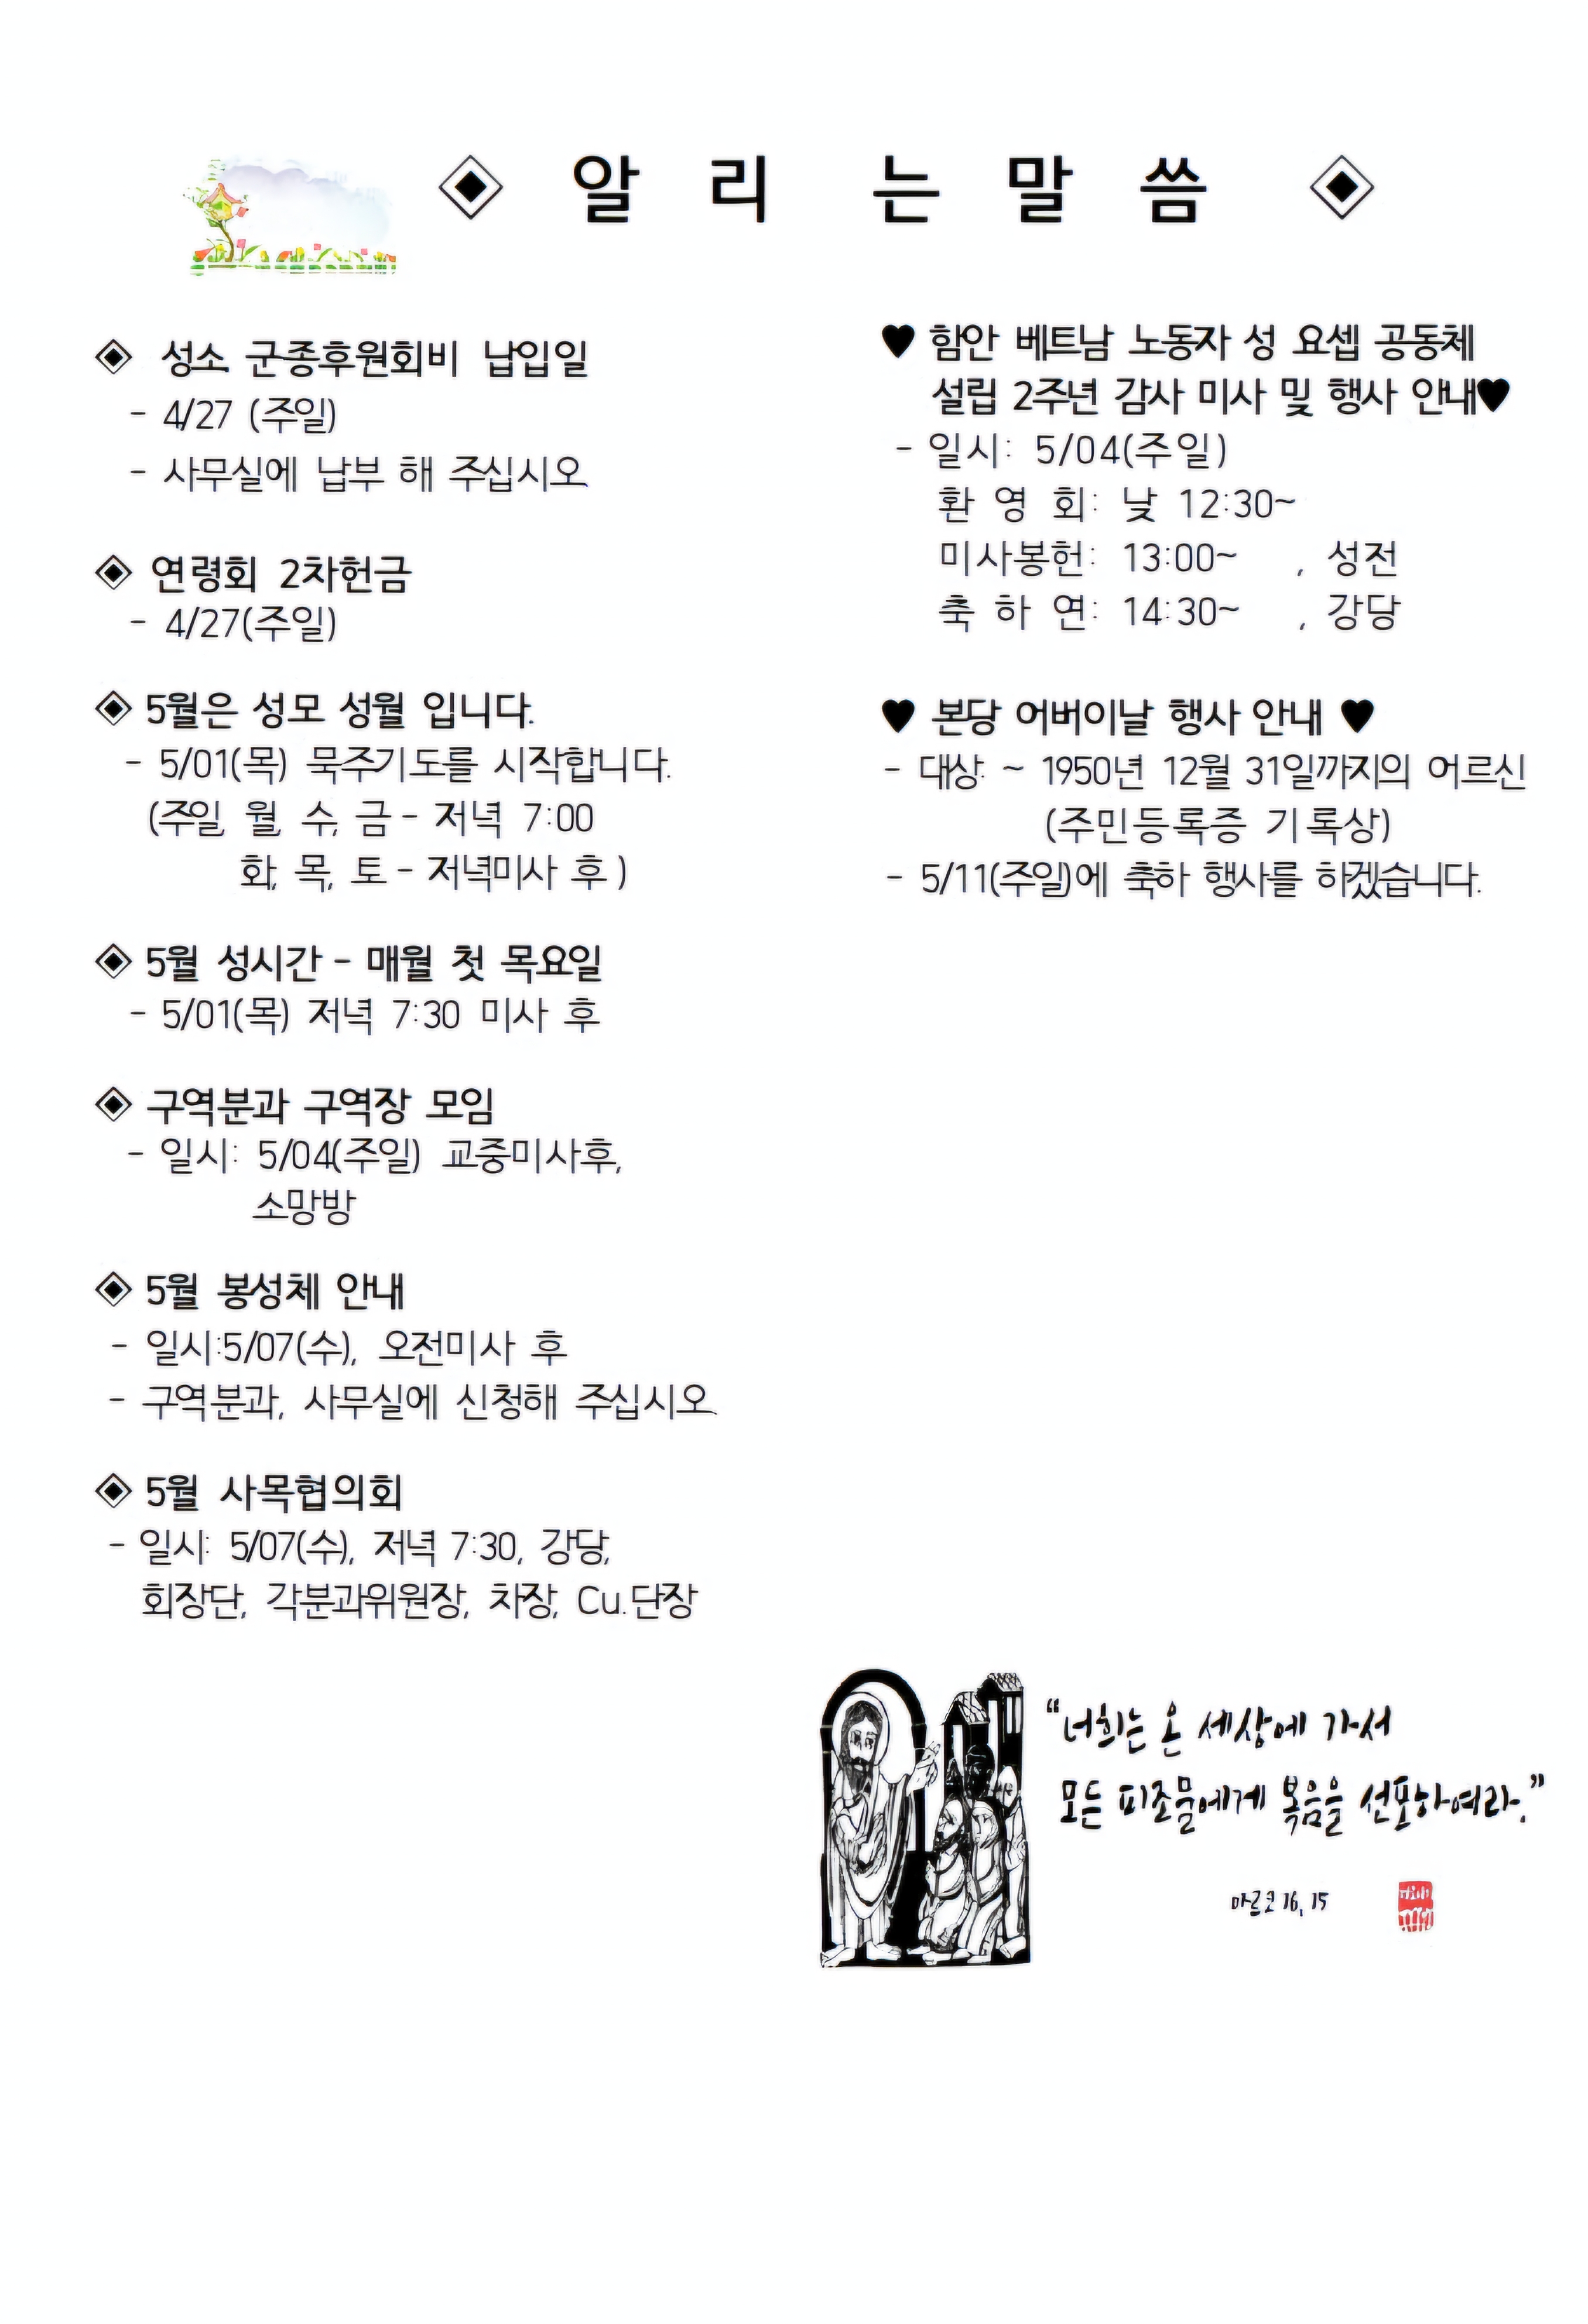 ◈ 알 리 는 말 씀 ◈
◈ 성소 군종후원회비 납입일
- 4/27 (주일)
- 사무실에 납부 해 주십시오.
◈ 연령회 2차헌금
- 4/27(주일)
◈ 5월은 성모 성월 입니다.
- 5/01(목) 묵주기도를 시작합니다.
(주일, 월, 수, 금 - 저녁 7:00
화, 목, 토 - 저녁미사 후 )
◈ 5월 성시간 - 매월 첫 목요일
- 5/01(목) 저녁 7:30 미사 후
◈ 구역분과 구역장 모임
- 일시: 5/04(주일) 교중미사후,
소망방
◈ 5월 봉성체 안내
- 일시:5/07(수), 오전미사 후
- 구역분과, 사무실에 신청해 주십시오.
◈ 5월 사목협의회
- 일시: 5/07(수), 저녁 7:30, 강당,
회장단, 각분과위원장, 차장, Cu.단장
♥ 함안 베트남 노동자 성 요셉 공동체
설립 2주년 감사 미사 및 행사 안내♥
- 일시: 5/04(주일)
환 영 회: 낮 12:30~
미사봉헌: 13:00~ , 성전
축 하 연: 14:30~ , 강당
♥ 본당 어버이날 행사 안내 ♥
- 대상: ~ 1950년 12월 31일까지의 어르신
(주민등록증 기록상)
- 5/11(주일)에 축하 행사를 하겠습니다.
“너희는 온 세상에 가서
모든 피조물에게 복음을 선포하여라.”
마르코 16, 15